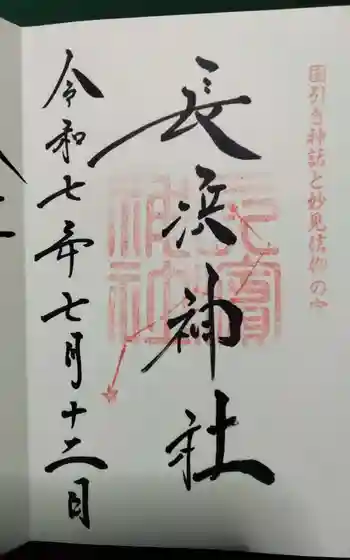 国引き神話と妙見信仰の宮
長浜神社
令和七年七月十二日